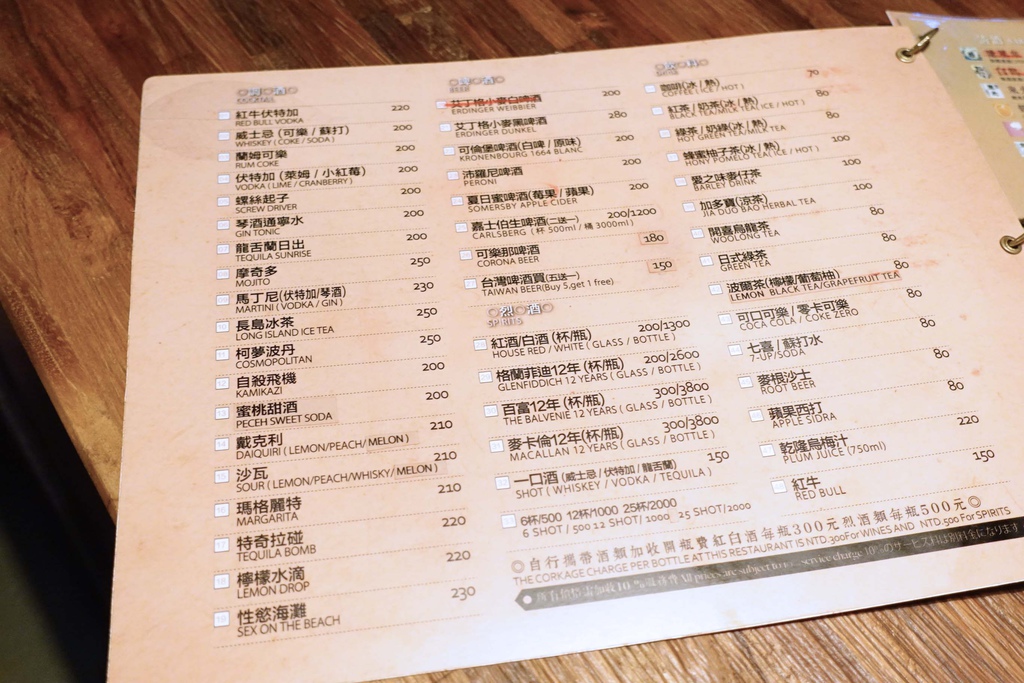 調酒
COCKTAIL
紅牛伏特加 220
RED BULL VODKA
威士忌 (可樂 / 蘇打) 200
WHISKEY ( COKE / SODA )
蘭姆可樂 200
RUM COKE
伏特加 (萊姆 / 小紅莓) 200
VODKA ( LIME / CRANBERRY )
螺絲起子 200
SCREW DRIVER
琴酒通寧水 200
GIN TONIC
龍舌蘭日出 200
TEQUILA SUNRISE
摩奇多 250
MOJITO
馬丁尼(伏特加/琴酒) 230
MARTINI ( VODKA / GIN )
長島冰茶 250
LONG ISLAND ICE TEA
柯夢波丹 250
COSMOPOLITAN
自殺飛機 200
KAMIKAZI
蜜桃甜酒 200
PECEH SWEET SODA
戴克利 210
DAIQUIRI ( LEMON/PEACH/ MELON )
沙瓦 210
SOUR ( LEMON/PEACH/WHISKY/ MELON )
瑪格麗特 210
MARGARITA
特奇拉碰 220
TEQUILA BOMB
檸檬水滴 220
LEMON DROP
性慾海灘 230
SEX ON THE BEACH
啤酒
BEER
艾丁格小麥白啤酒 200
ERDINGER WEIBBIER
艾丁格小麥黑啤酒 280
ERDINGER DUNKEL
可倫堡啤酒(白啤 / 原味) 200
KRONENBOURG 1664 BLANC
沛羅尼啤酒 200
PERONI
夏日蜜啤酒(莓果 / 蘋果) 200
SOMERSBY APPLE CIDER
嘉士伯生啤酒(二送一) 200/1200
CARLSBERG ( 杯 500ml / 桶 3000ml )
可樂那啤酒 180
CORONA BEER
台灣啤酒買(五送一) 150
TAIWAN BEER(Buy 5,get 1 free)
烈酒
SPIRITS
紅酒/白酒 (杯/瓶) 200/1300
HOUSE RED / WHITE ( GLASS / BOTTLE )
格蘭菲迪12年 (杯/瓶) 200/2600
GLENFIDDICH 12 YEARS ( GLASS / BOTTLE )
百富12年 (杯/瓶) 300/3800
THE BALVENIE 12 YEARS ( GLASS / BOTTLE )
麥卡倫12年(杯/瓶) 300/3800
MACALLAN 12 YEARS ( GLASS / BOTTLE )
一口酒 (威士忌 / 伏特加 / 龍舌蘭) 150
SHOT ( WHISKEY / VODKA / TEQUILA )
6杯/500 12杯/1000 25杯/2000
6 SHOT / 500 12 SHOT/ 1000 25 SHOT/2000
飲料
咖啡(冰 / 熱) 70
COFFEE( ICE / HOT )
紅茶 / 奶茶(冰 / 熱) 80
BLACK TEA/MILK TEA( ICE / HOT )
綠茶 / 奶綠(冰 / 熱) 80
HOT GREEN TEA/MILK TEA
蜂蜜柚子茶(冰 / 熱) 100
HONY POMELO TEA( ICE / HOT )
愛之味麥仔茶 100
BARLEY DRINK
加多寶(涼茶) 100
JIA DUO BAO HERBAL TEA
開喜烏龍茶 80
WOOLONG TEA
日式綠茶 80
GREEN TEA
波爾茶(檸檬/葡萄柚) 80
LEMON BLACK TEA/GRAPEFRUIT TEA
可口可樂 / 零卡可樂 80
COCA COLA / COKE ZERO
七喜 / 蘇打水 80
7-UP/SODA
麥根沙士 80
ROOT BEER
蘋果西打 80
APPLE SIDRA
乾隆烏梅汁 220
PLUM JUICE (750ml)
紅牛 150
RED BULL
◎自行攜帶酒類加收開瓶費紅白酒每瓶300元烈酒類每瓶500元◎
THE CORKAGE CHARGE PER BOTTLE AT THIS RESTAURANT IS NTD.300For WINES AND NTD.500 For SPIRITS
All prices are subject to service charge 10%のサービス料は別料金になります